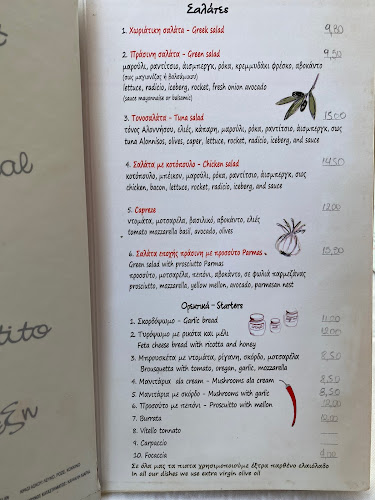 Σαλάτες
1. Χωριάτικη σαλάτα - Greek salad 9,80
2. Πράσινη σαλάτα - Green salad 9,50
μαρούλι, ραντίτσιο, άισμπεργκ, ρόκα, κρεμμυδάκι φρέσκο, αβοκάντο
(σως μαγιονέζας ή βαλσάμικου)
lettuce, radicio, iceberg, rocket, fresh onion avocado
(sauce mayonnaise or balsamic)
3. Τονοσαλάτα - Tuna salad
τόνος Αλοννήσου, ελιές, κάπαρη, μαρούλι, ρόκα, ραντίτσιο, άισμπεργκ, σως
tuna Alonnisos, olives, caper, lettuce, rocket, radicio, iceberg, and sauce
4. Σαλάτα με κοτόπουλο - Chicken salad 14,50
κοτόπουλο, μπέικον, μαρούλι, ρόκα, ραντίτσιο, άισμπεργκ, σως
chicken, bacon, lettuce, rocket, radicio, iceberg, and sauce
5. Capreze 12,00
ντομάτα, μοτσαρέλα, βασιλικό, αβοκάντο, ελιές
tomato mozzarella basil, avocado, olives
6. Σαλάτα εποχής πράσινη με προσούτο Parmas
Green salad with prosciutto Parmas
προσούτο, μοτσαρέλα, πεπόνι, αβοκάντο, σε φωλιά παρμεζάνας
prosciutto, mazzarella, yellow mellon, avocado, parmesan nest
Ορεκτικά - Starters
1. Σκορδόψωμο - Garlic bread
2. Τυρόψωμο με ρικότα και μέλι 12,00
Feta cheese bread with ricotta and honey
3. Μπρουσκέτα με ντομάτα, ρίγανη, σκόρδο, μοτσαρέλα 8,50
Brousquetta with tomato, oregan, garlic, mozzarella
4. Μανιτάρια ala cream - Mushrooms ala cream 8,50
5. Μανιτάρια με σκόρδο - Mushrooms with garlic 8,50
6. Προσούτο με πεπόνι - Proscuitto with mellon 12,00
7. Burrata 12,00
8. Vitello tonnato
9. Carpaccio
10. Focaccia
Σε όλα μας τα πιατα χρησιμοποιούμε έξτρα παρθένο ελαιόλαδο
In all our dishes we use extra virgin olive oil